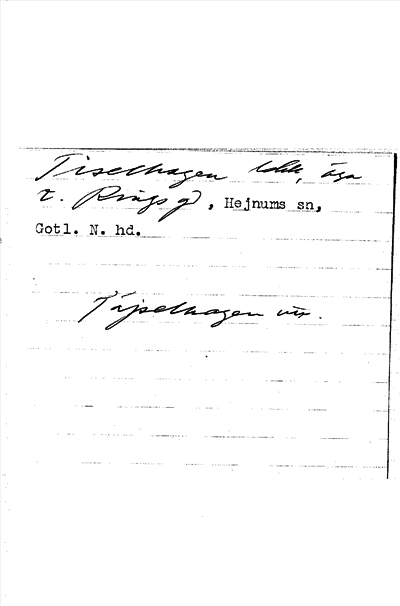 Tiselhagen lokk, äga
t. Rings gd, Hejnums sn,
Gotl. N. hd.
Täjselhagen utt.